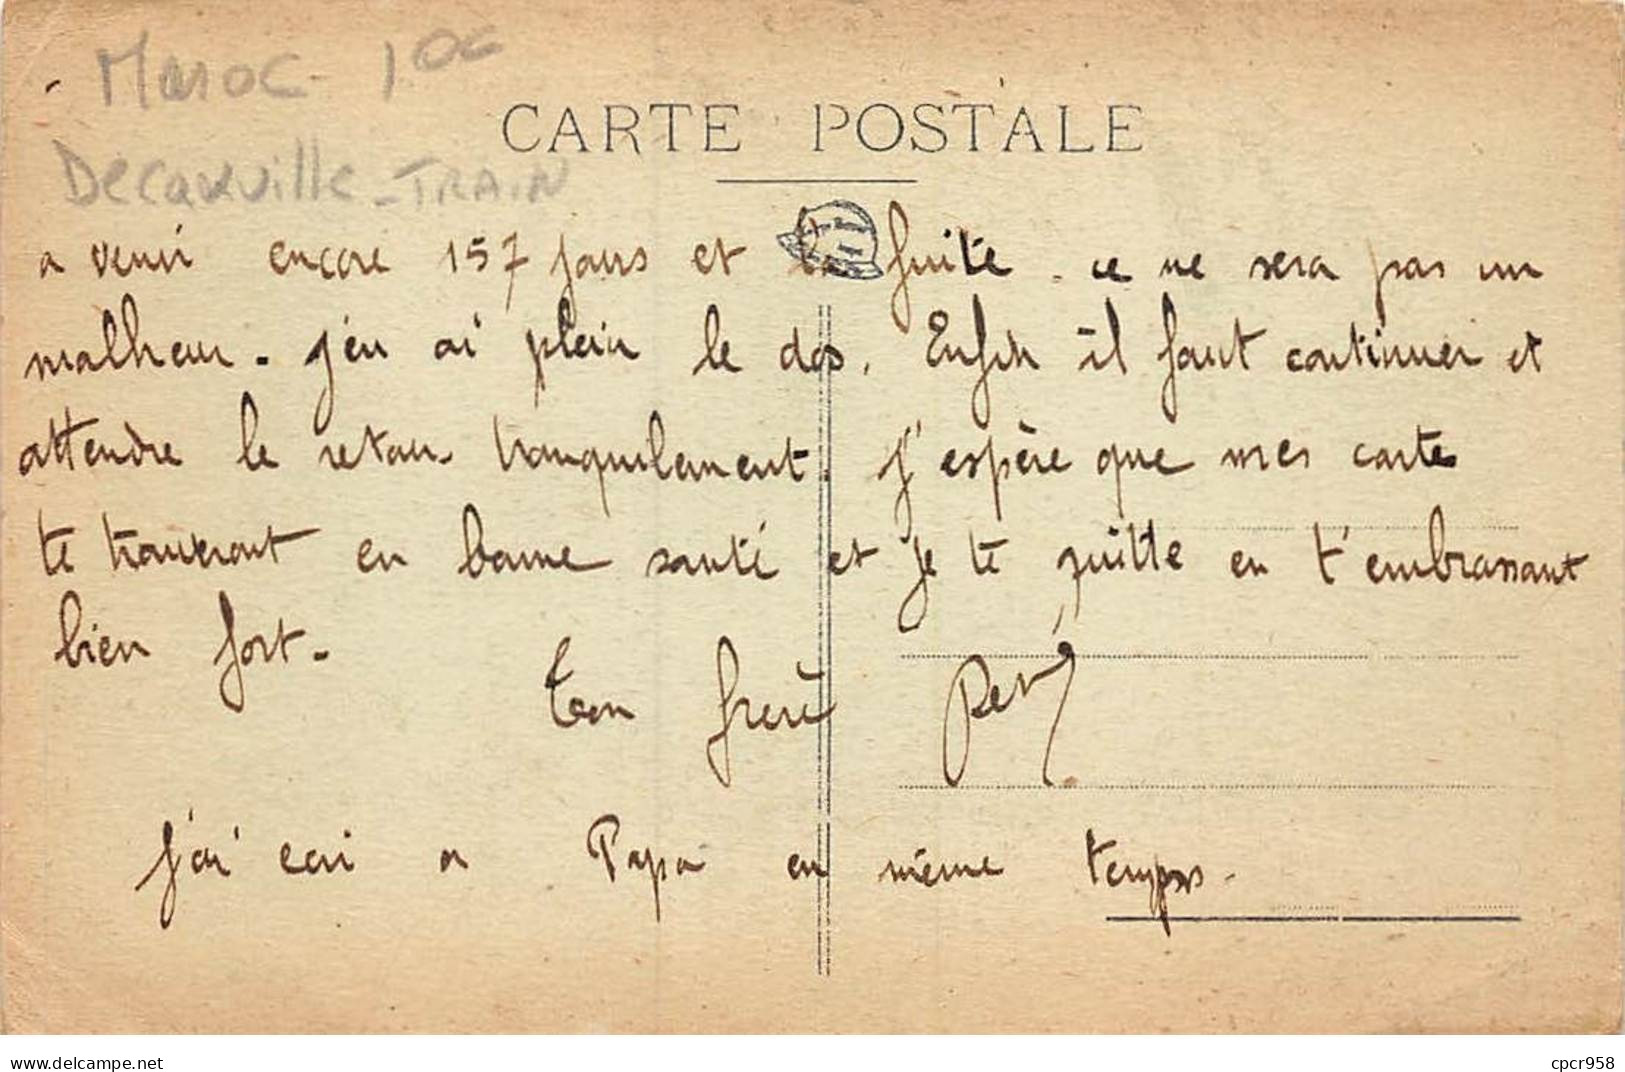 Maroc - 10c
CARTE POSTALE
Decauville - TRAIN
a venir encore 157 jours et la fuite. ce ne sera pas un
malheur. j'en ai plein le dos. Enfin il faut continuer et
attendre le retour tranquilement. J'espère que mes carte
te trouveront en bonne santé et je te quitte en t'embrassant
bien fort.
Ton frère
J'ai ecri a Papa en même temps.
www.delcampe.net
cpcr958